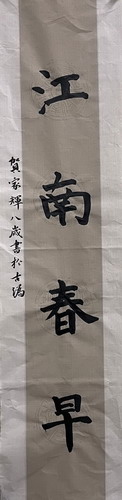 江南春早
賀家輝八歲書於古瑀